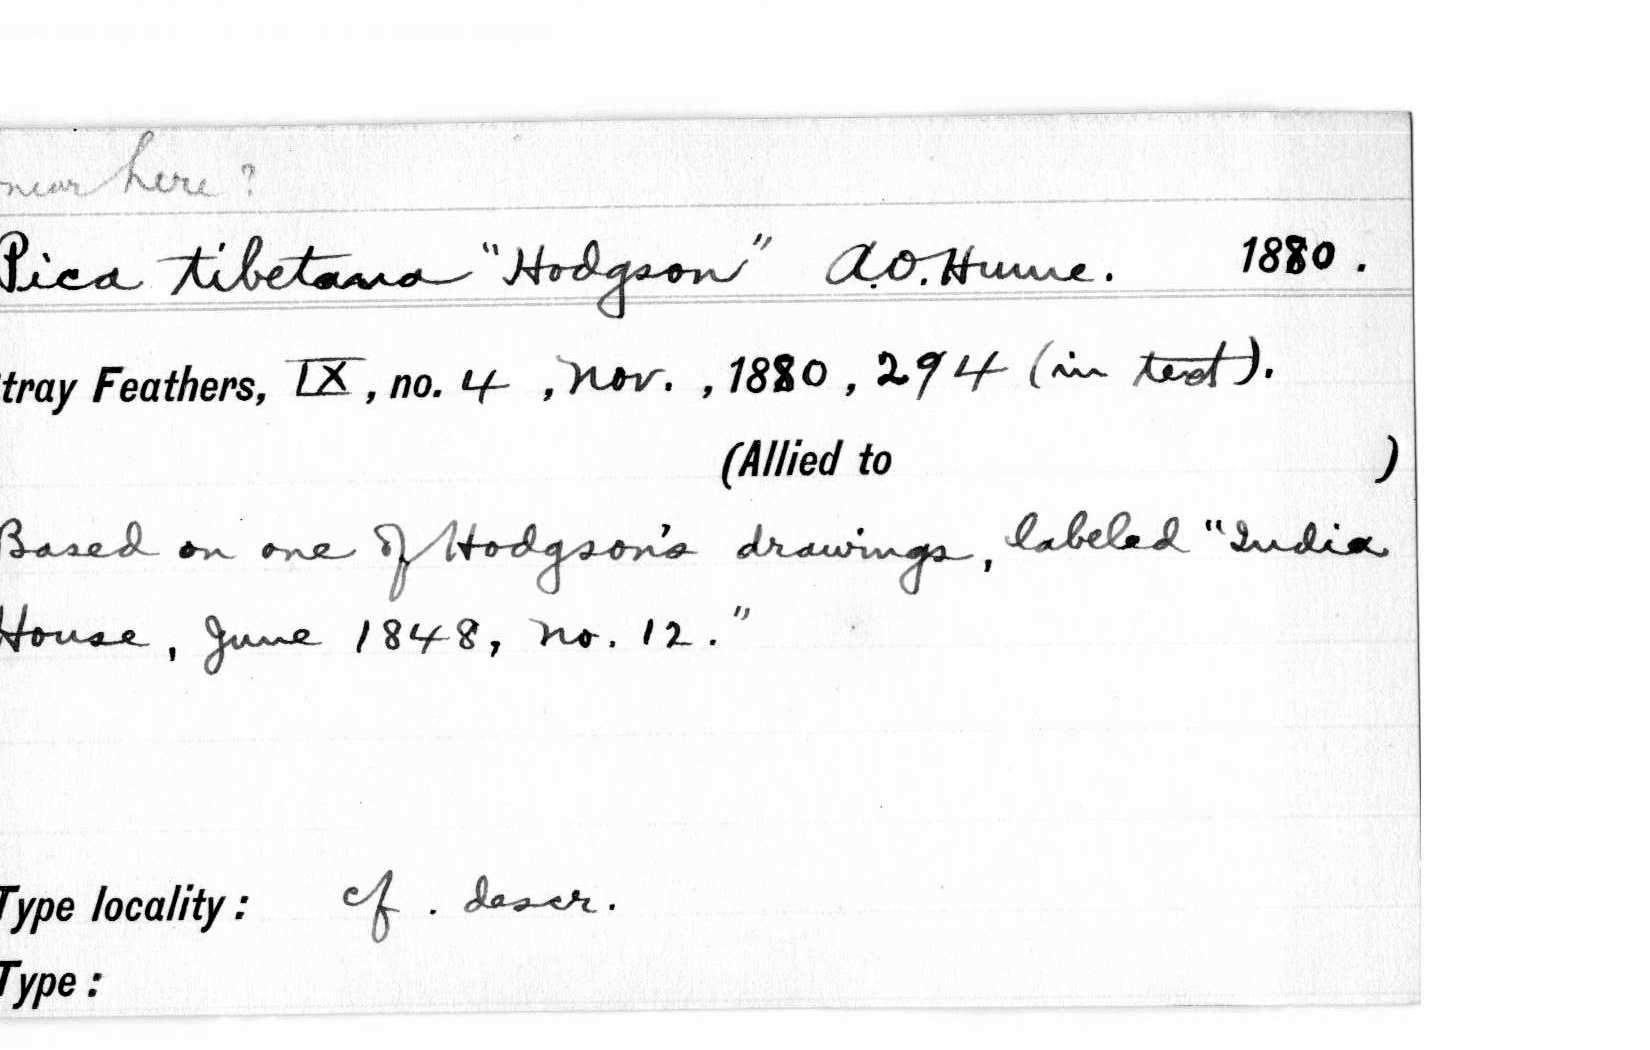 near here?
Pica tibetana "Hodgson" A.O. Hume. 1880.
tray Feathers, IX, no. 4, Nov., 1880, 294 (in text).
(Allied to )
Based on one of Hodgson's drawings, labeled "India
House, June 1848, no. 12."
Type locality: cf. descr.
Type: